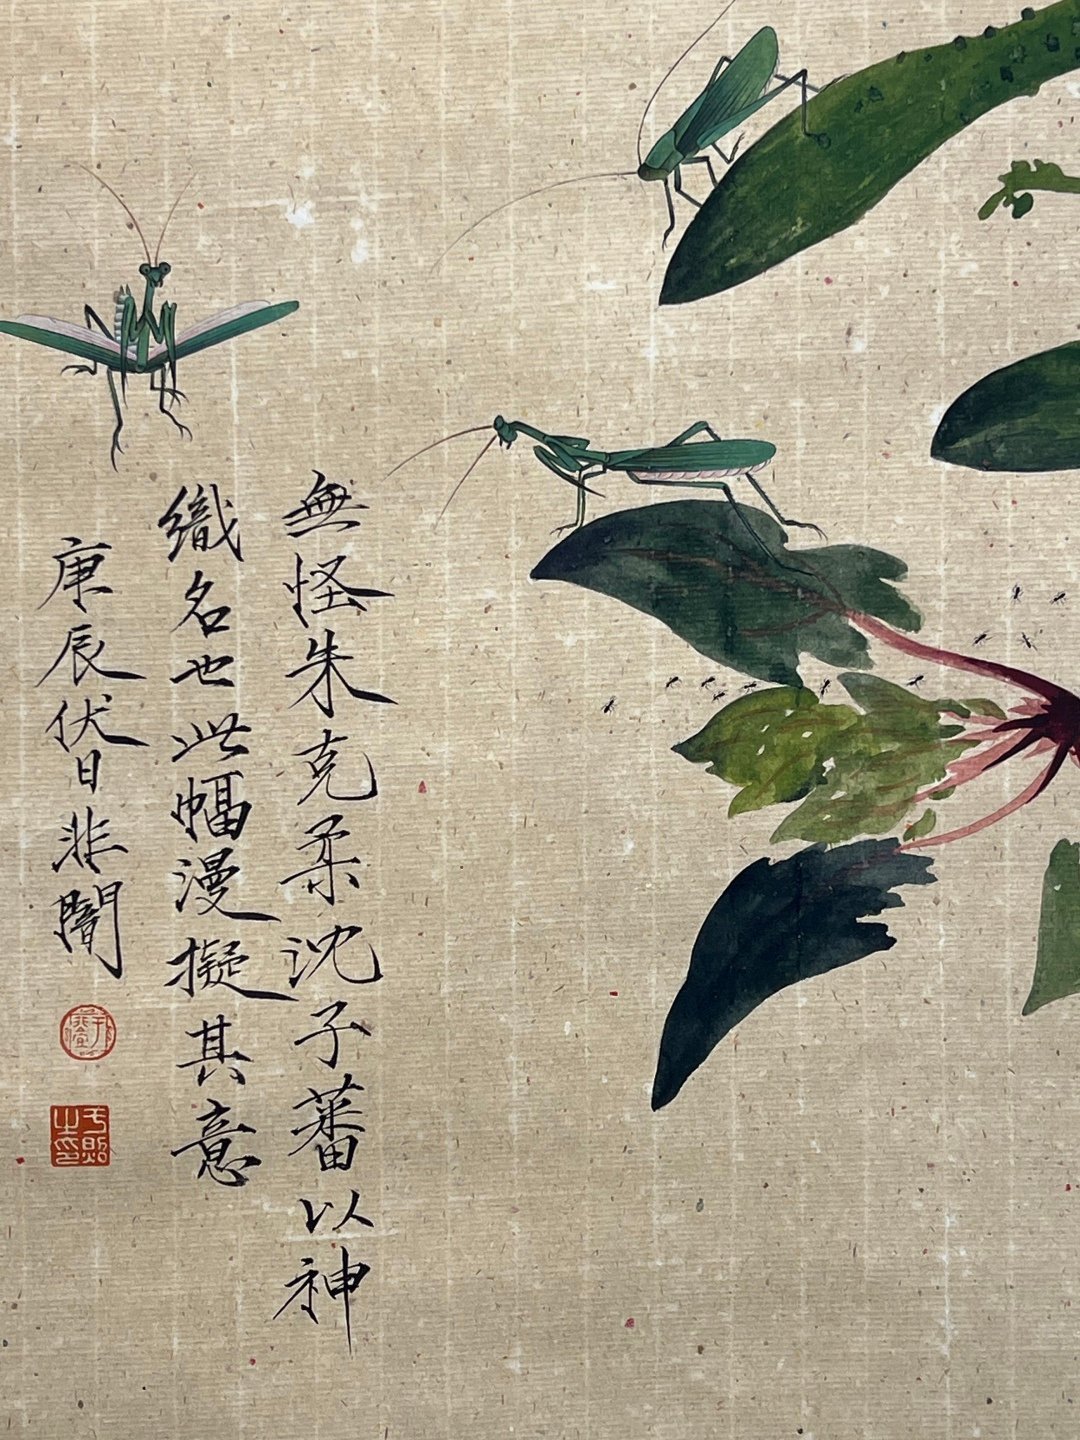 無怪朱克柔沈子蕃以神
織名也此幅漫擬其意
庚辰伏日非闇